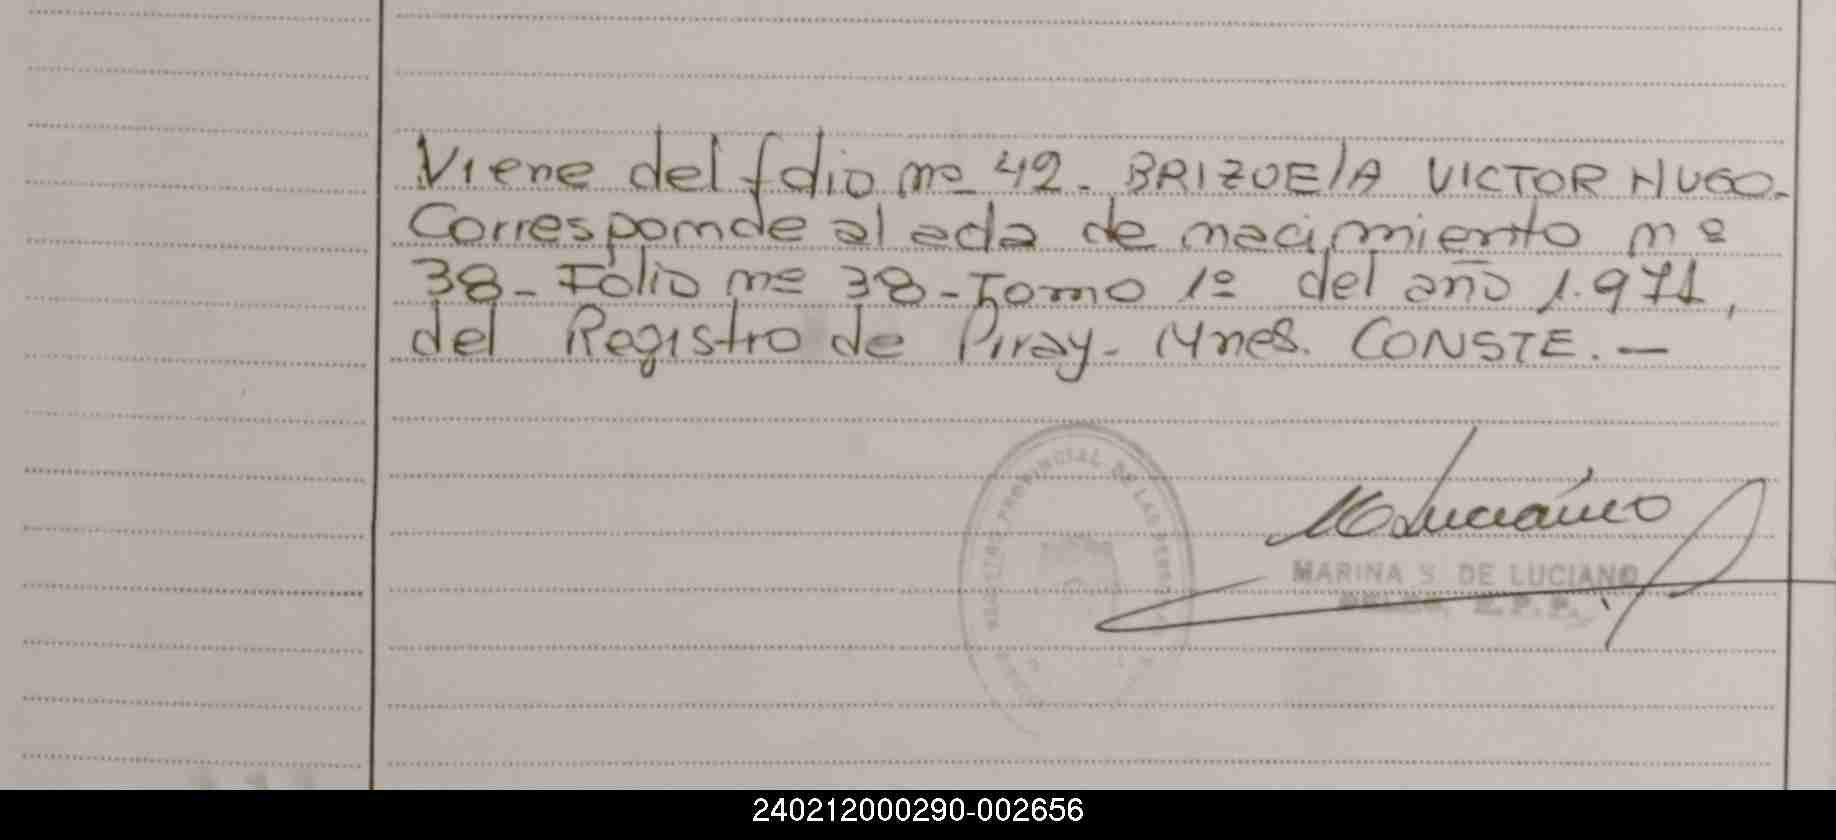 Viene del folio nº 42. BRIZUElA VICTOR HUGO.
Corresponde al acta de nacimiento nº
38 - Folio nº 38 - Tomo 1º del año 1.971,
del Registro de Piray - Mnes. CONSTE. —
REGISTRO PROVINCIAL DE LAS PERSONAS
M Luciano
MARINA S. DE LUCIANO
240212000290-002656